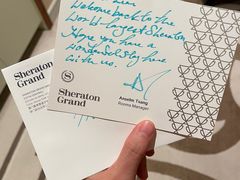 Welcome back to the
World-largest Sheraton
Hope you have a
wonderful stay here
with us.
Anselm Tsang
Rooms Manager
Sheraton
Grand
Sheraton
Grand